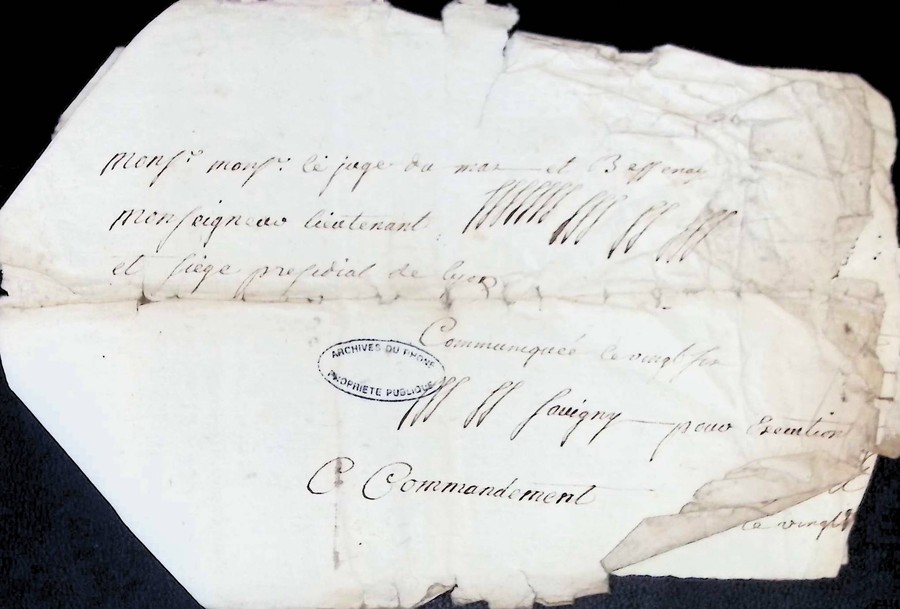 monsr monsr. le juge du mas et Bessenay
monseigneur lieutenant
et siège presidial de lyon
Communiqué le vingt six
ARCHIVES DU RHONE
PROPRIETE PUBLIQUE
Savigny pour Execution
C Commandement
le vingt